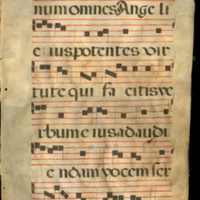 num omnes Ange li
e ius potentes vir
tute qui fa citis ve
rbum e ius ad audi
e ndam vocem ser